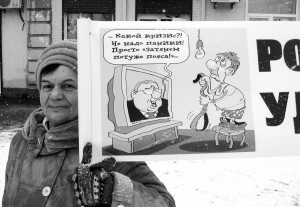 - Какой кризис?!
Не надо паники!
Просто "затянем
потуже пояса!"...
РО
УД